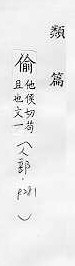 類篇
偷
他侯切苟
且也文一
(人部·
p281
)